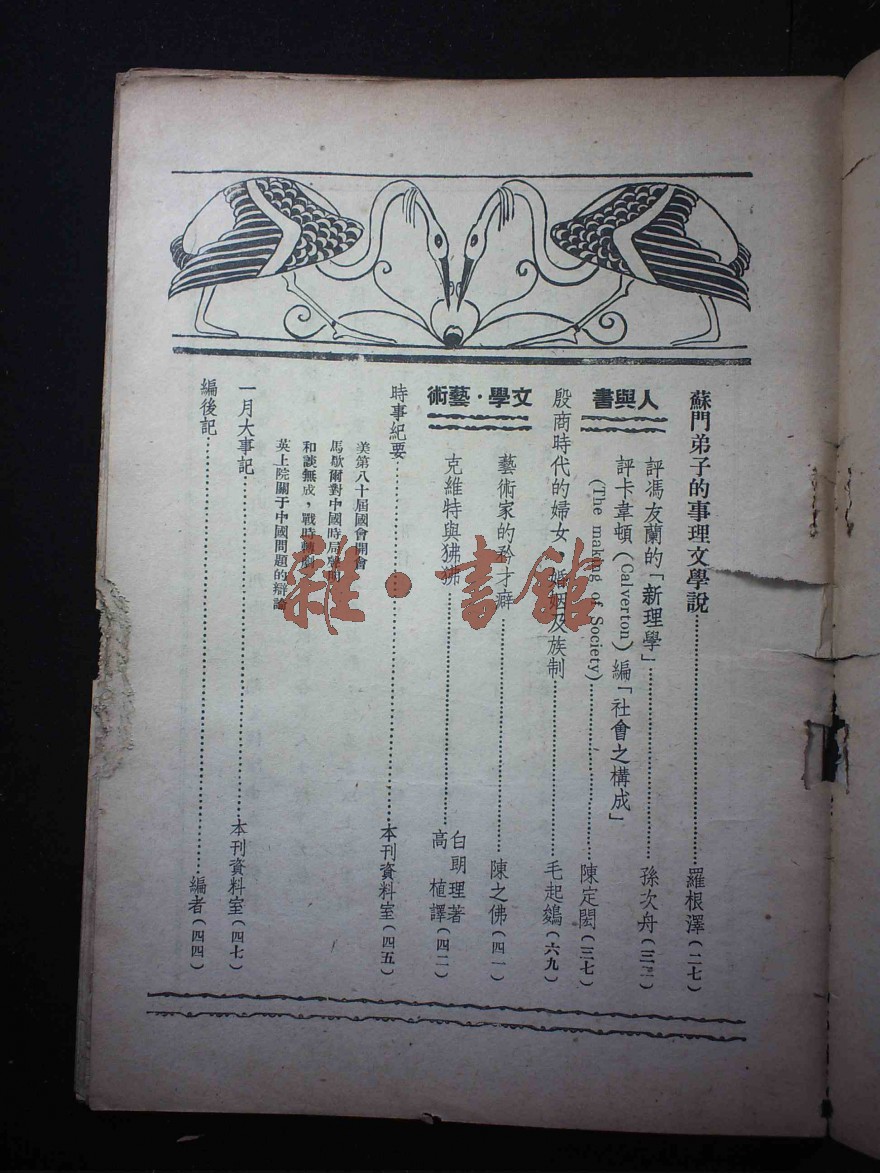 蘇門弟子的事理文學說……羅根澤(二七)
人與書
評馮友蘭的「新理學」……孫次舟(三二)
評卡韋頓(Calverton)編「社會之構成」
(The making of Society)……陳定閎(三七)
殷商時代的婦女・婚姻及族制……毛起鵕(六九)
文學・藝術
藝術家的矜才癖……陳之佛(四一)
克維特與狒狒……白朗理著
高植譯(四二)
時事紀要……本刊資料室(四五)
美第八十屆國會開會
馬歇爾對中國時局聲明
和談無成,戰時轉劇
英上院關于中國問題的辯論
一月大事記……本刊資料室(四七)
編後記……編者(四四)
雜・書館